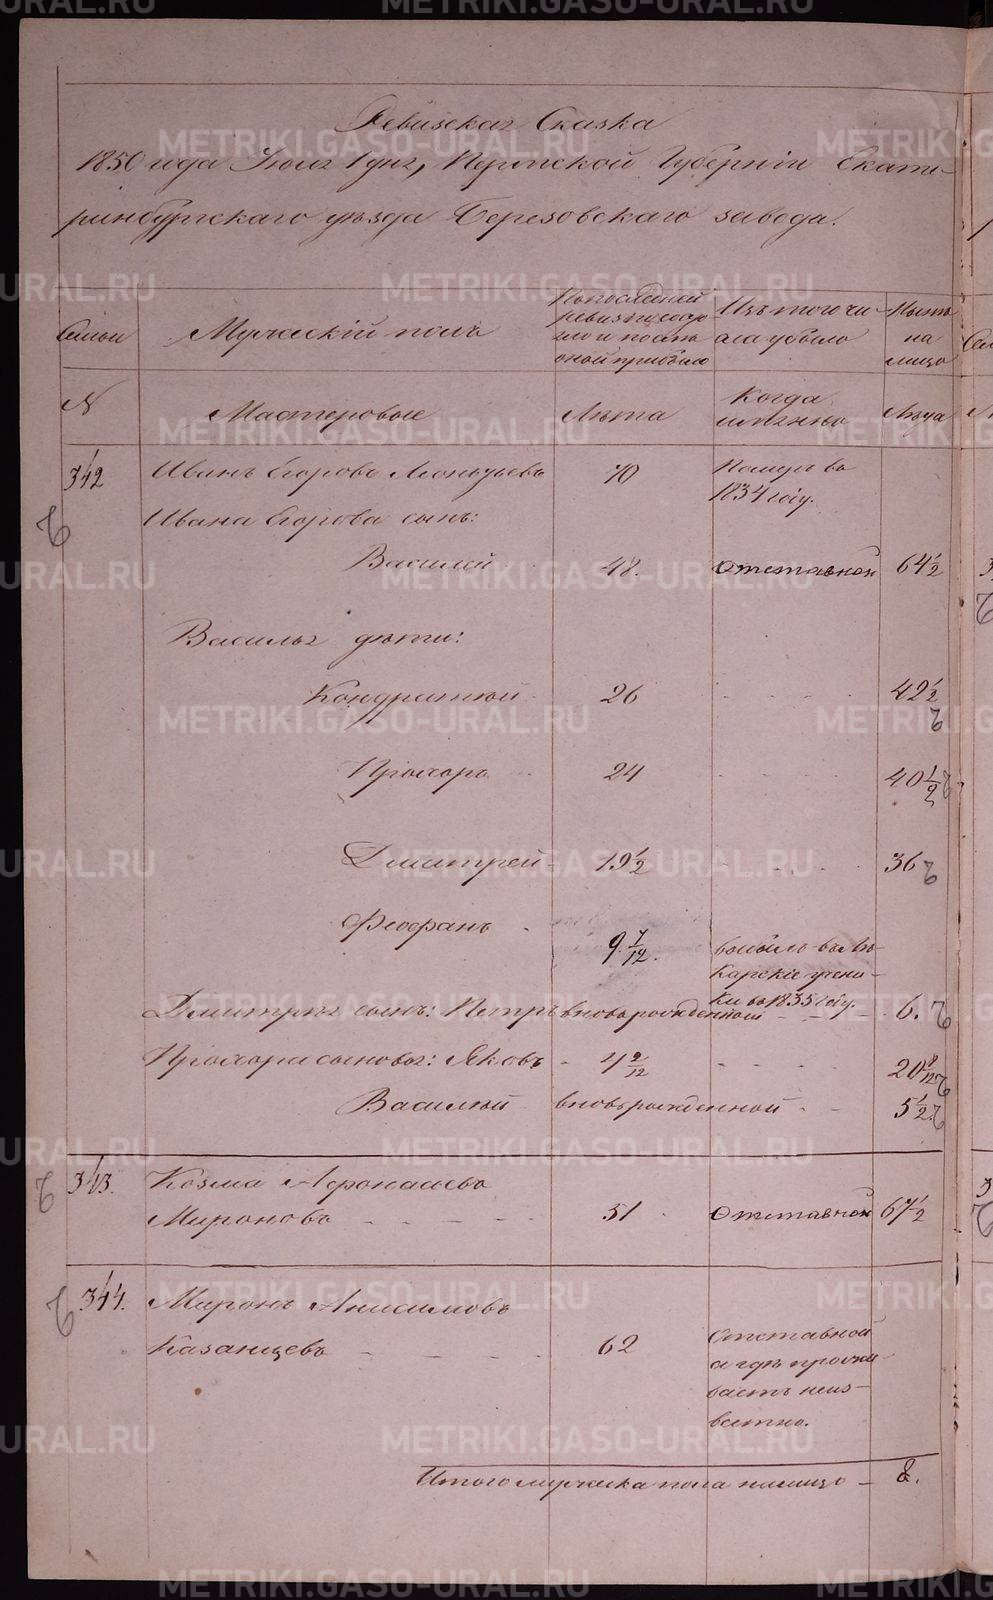 Ревизская Сказка
1850 года Июля 1 дня, Пермской Губернiи Екате-
ринбургскаго уѣзда Березовскаго завода.
Семьи
Мужескiй полъ
По последней ревизiи состояло и после оной прибыло
Изъ того числа убыло
Ныне на лицо
N
Мастеровые
Лѣта
Когда именно
Лѣта
342
Иванъ Егоровъ
70
Померъ въ 1834 году.
Ивана Егорова сынъ:
Василей
48.
Отставной
64 1/2
Василья дѣти:
Кондратей
26
42 1/2
Прохоръ
24
40 1/2
Дмитрей
19 1/2
36
Феофанъ
9 7/12.
карскiе учени-
ки въ 1835 году.
Дмитрiя сынъ: Петръ вновьрожденной
6.
Прохора сыновья: Яковъ
4 2/12
20 8/12
Василiй вновьрожденной
5 1/2
343.
Козма Афонасьевъ
Мироновъ
51
Отставной
67 1/2
344.
Миронъ Анисимовъ
Казанцевъ
62
Отставной
а где прожи-
ваетъ неиз-
вестно.
Итого мужеска пола налицо – 8.
METRIKI.GASO-URAL.RU